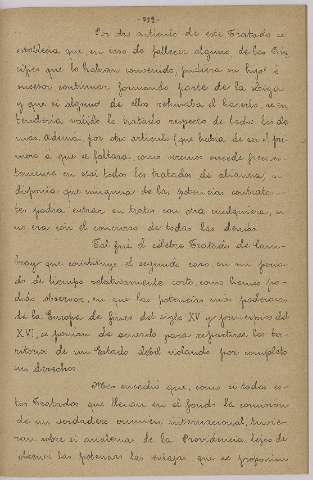 -212-
Por otro artículo de este Tratado se
establecía que, en caso de fallecer alguno de los Prín-
cipes que lo habían convenido, pudiera su hijo ó
sucesor continuar formando parte de la Liga
y que si alguno de ellos rehusaba el hacerlo, se en-
tendería válido le tratado respecto de todos los de-
más. Además, por otro artículo (que había de ser el pri-
mero a que se faltara, como vemos sucede frecuen-
temente en casi todos los tratados de alianza, se
disponía que ninguna de las potencias contratan-
tes podría entrar en tratos con otra cualquiera, si
no era con el concurso de todas las demás.
Tal fué el célebre Tratado de Cam-
bray que constituye el segundo caso, en un perio-
do de tiempo relativamente corto, como hemos po-
dido observar, en que las potencias más poderosas
de la Europa de fines del siglo XV y principios del
XVI, se ponían de acuerdo para repartirse los te-
rritorios de un Estado débil violando por completo
sus derechos.
Mas sucedió que, como si todos es-
tos Tratados que llevan en el fondo la comisión
de un verdadero crimen internacional, tuvie-
ran sobre sí anatema de la Providencia, lejos de
obtener las potencias las ventajas que se proponían